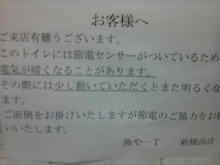 お客様へ
ご来店有難うございます。
このトイレには節電センサーがついているため
電気が暗くなることがあります。
その際には少し動いていただくとまた明るくな
ます。
ご面倒をお掛けいたしますが節電のご協力をお
いいたします。
魚や一丁 新横浜店